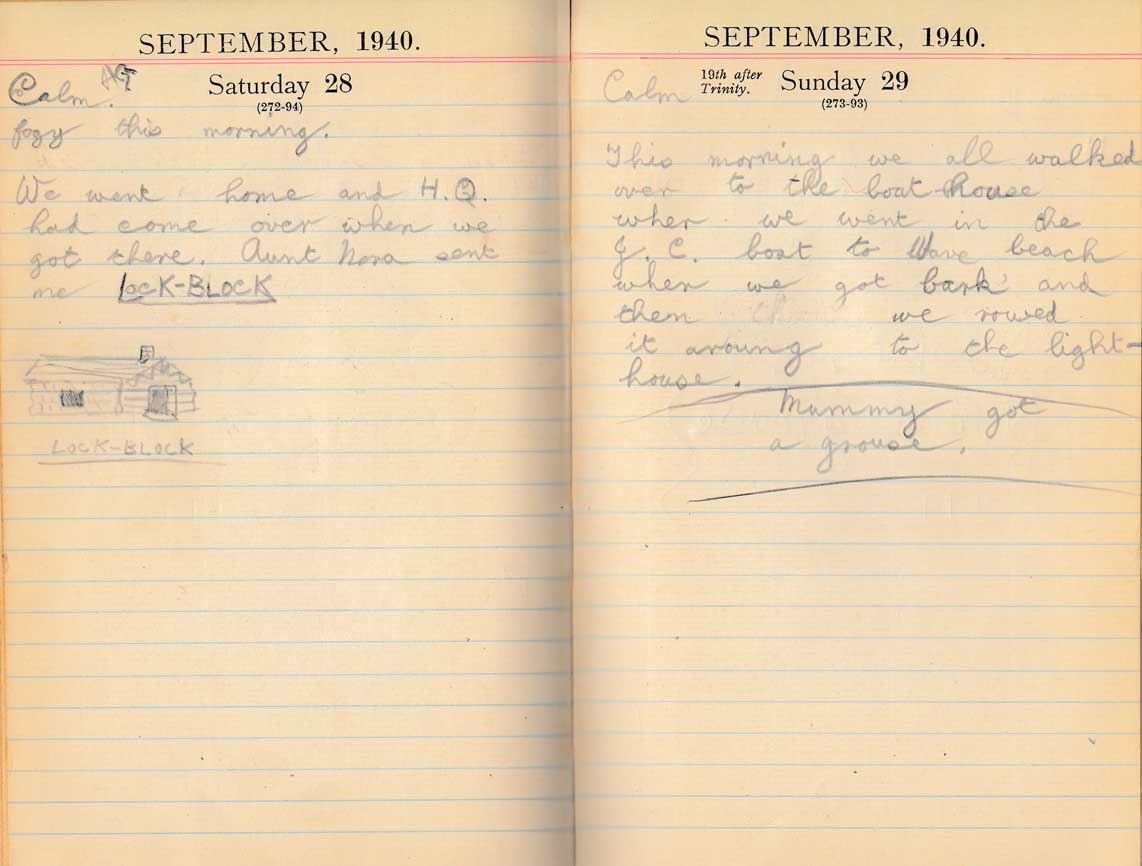 SEPTEMBER, 1940.
Saturday 28
(272-94)
Calm.
fogy this morning.
We went home and H.Q.
had come over when we
got there. Aunt Nora sent
me LOCK-BLOCK
LOCK-BLOCK
SEPTEMBER, 1940.
19th after
Trinity.
Sunday 29
(273-93)
Calm
This morning we all walked
over to the boat-house
wher we went in the
J. C. boat to Wave beach
when we got bark and
then we rowed
it aroung to the light-
house.
Mummy got
a grouse.